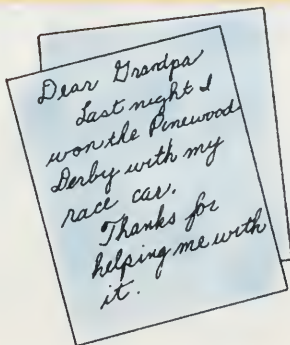 Dear Grandpa
Last night I
won the Pinewood
Derby with my
race car.
Thanks for
helping me with
it.